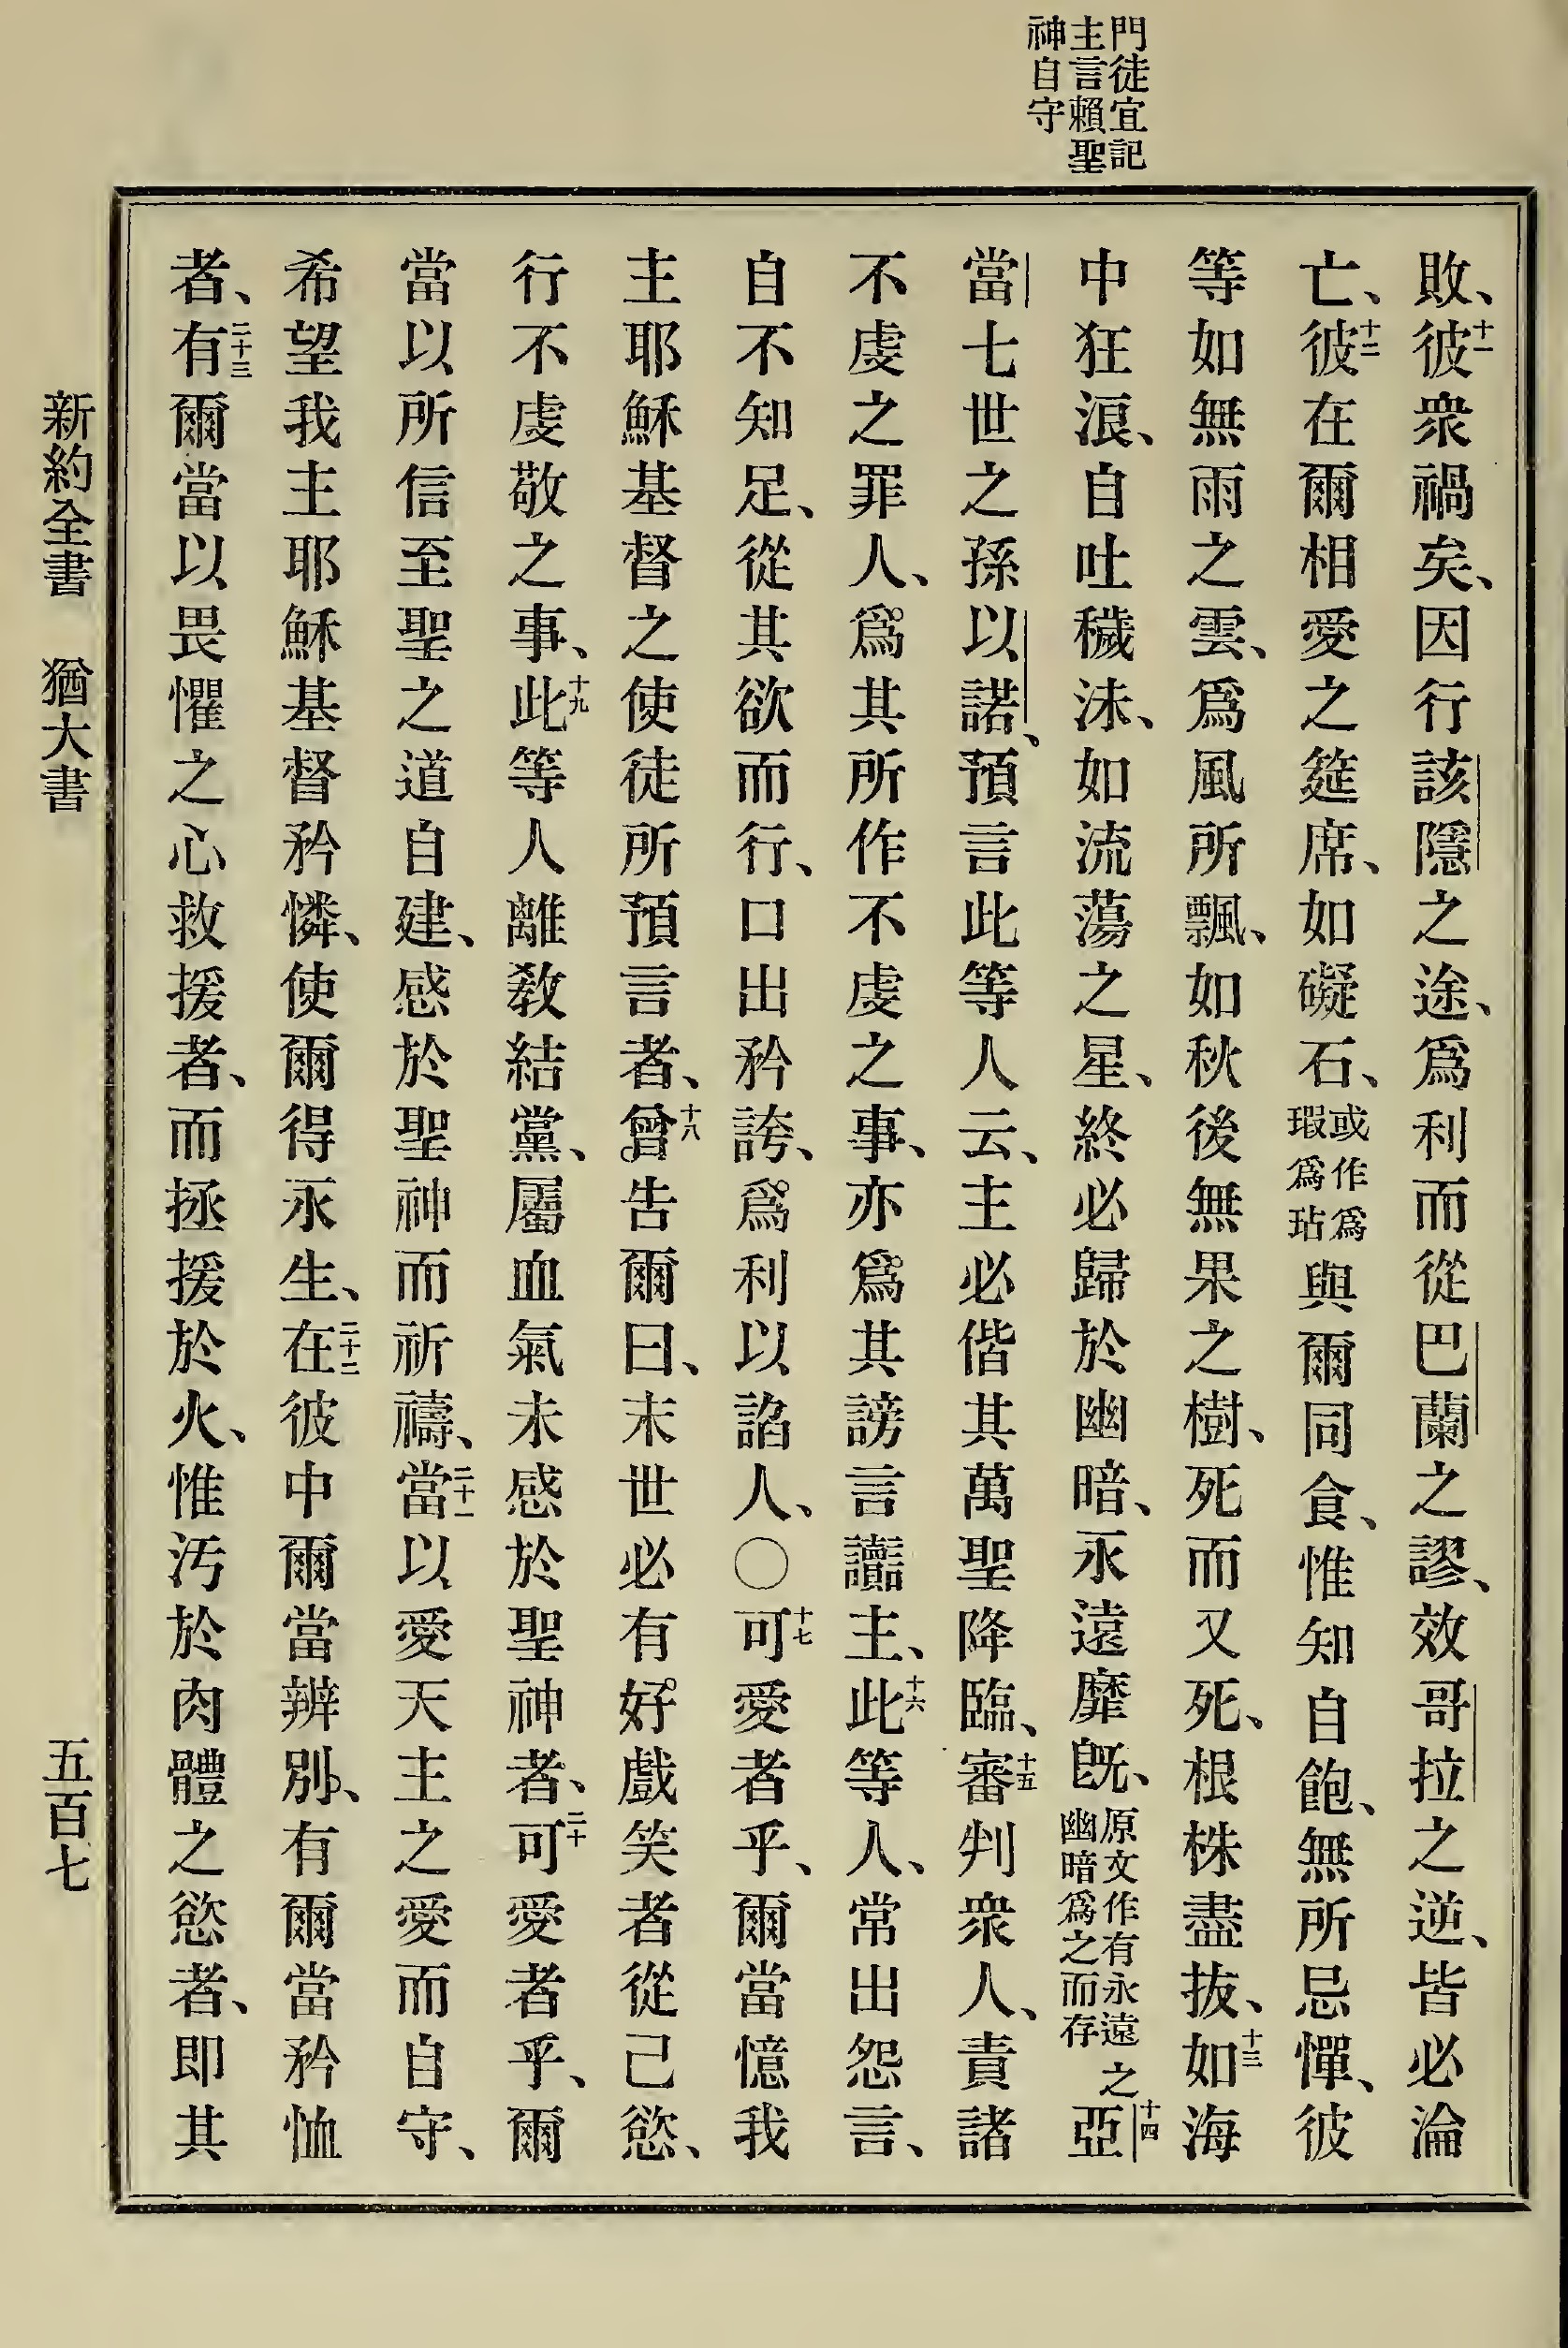 門徒宜記
主言賴聖
神自守
敗、十一彼衆禍矣、因行該隱之途、爲利而從巴蘭之謬、效哥拉之逆、皆必淪
亡、十二彼在爾相愛之筵席、如礙石、或作爲瑕爲玷與爾同食、惟知自飽、無所忌憚、彼
等如無雨之雲、爲風所飄、如秋後無果之樹、死而又死、根株盡拔、十三如海
中狂浪、自吐穢沬、如流蕩之星、終必歸於幽暗、永遠靡旣、原文作有永遠之幽暗爲之而存十四亞
當七世之孫以諾、預言此等人云、主必偕其萬聖降臨、十五審判衆人、責諸
不虔之罪人、爲其所作不虔之事、亦爲其謗言讟主、十六此等人、常出怨言、
自不知足、從其欲而行、口出矜誇、爲利以諂人、○十七可愛者乎、爾當憶我
主耶穌基督之使徒所預言者、十八曾告爾曰、末世必有好戲笑者從己慾、
行不虔敬之事、十九此等人離教結黨、屬血氣未感於聖神者、二十可愛者乎、爾
當以所信至聖之道自建、感於聖神而祈禱、二十一當以愛天主之愛而自守、
希望我主耶穌基督矜憐、使爾得永生、二十二在彼中爾當辨別、有爾當矜恤
者、二十三有爾當以畏懼之心救援者、而拯援於火、惟汚於肉體之慾者、即其
新約全書　猶大書　五百七